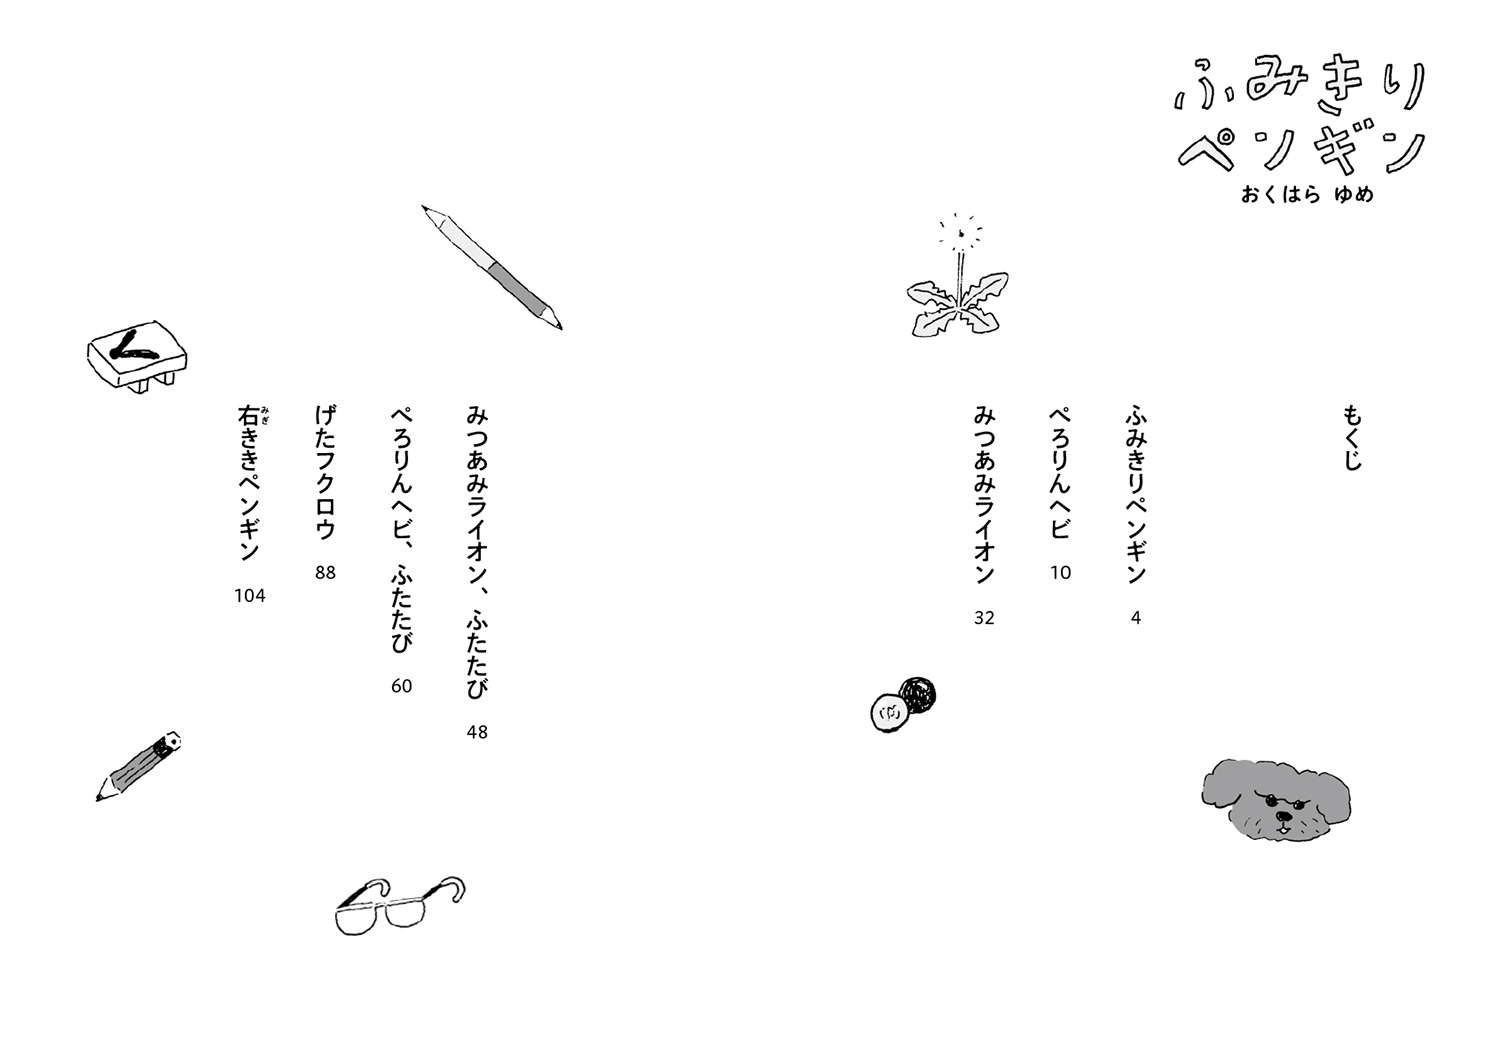 ふみきり
ペンギン
おくはら ゆめ
もくじ
ふみきりペンギン 4
ぺろりんヘビ 10
みつあみライオン 32
みつあみライオン、ふたたび 48
ぺろりんヘビ、ふたたび 60
げたフクロウ 88
右ききペンギン 104
みぎ
ゆ